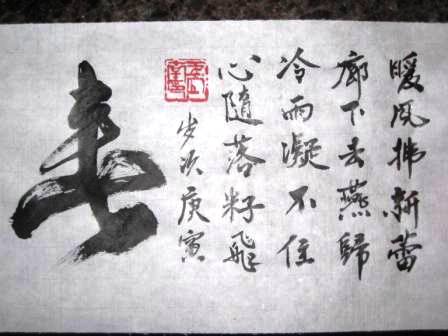 暖风拂新蕾
廊下去燕歸
冷雨凝不住
心隨落籽飛
岁次庚寅
春